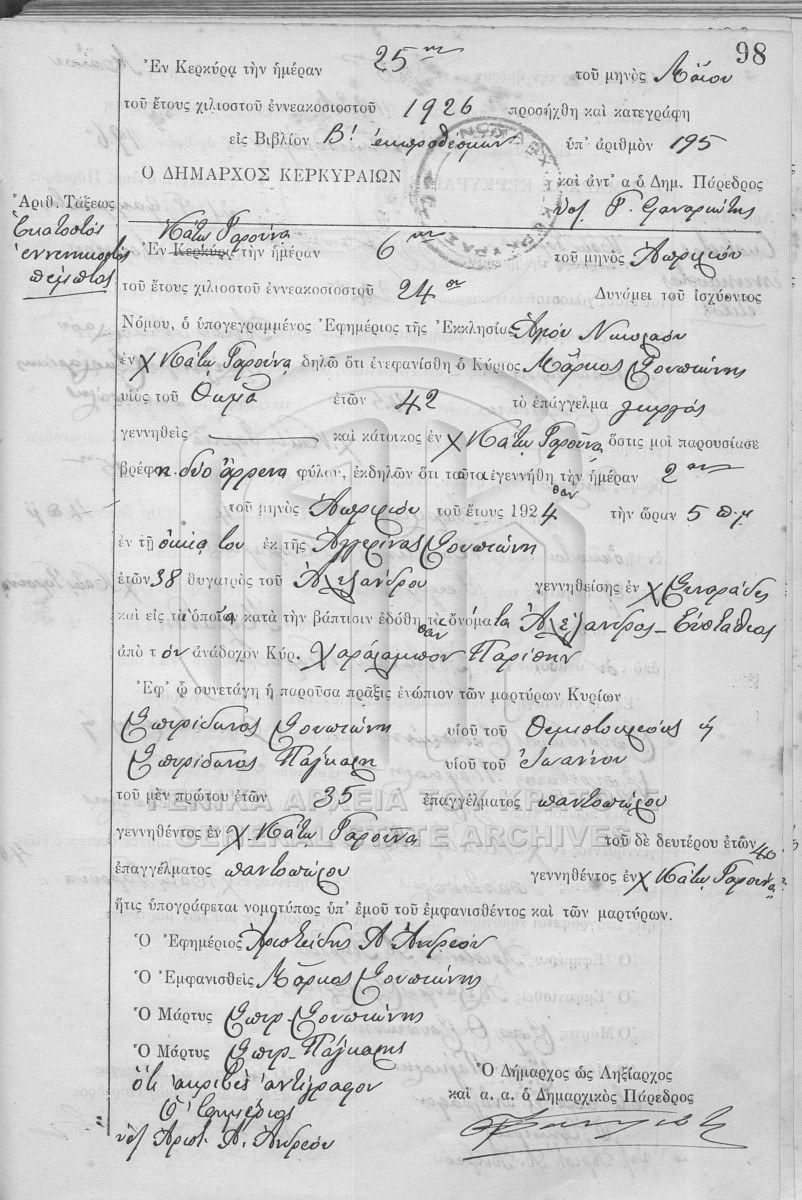 98
Ἐν Κερκύρᾳ τὴν ἡμέραν 25ην τοῦ μηνὸς Μαΐου
τοῦ ἔτους χιλιοστοῦ ἐννεακοσιοστοῦ 1926 προσήχθη καὶ κατεγράφη
εἰς Βιβλίον Β! ἐκπροθέσμων ὑπ' ἀριθμὸν 195
Ὁ ΔΗΜΑΡΧΟΣ ΚΕΡΚΥΡΑΙΩΝ καὶ ἀντ' α ὁ Δημ. Πάρεδρος
Ἀριθ. Τάξεως
Ἑκατοστὸς
ἐννενηκοστὸς
πέμπτος
Κάτω Γαρούνα
Ἐν Κερκύρᾳ τὴν ἡμέραν 6ην τοῦ μηνὸς Ἀπριλίου
τοῦ ἔτους χιλιοστοῦ ἐννεακοσιοστοῦ 24ου Δυνάμει τοῦ ἰσχύοντος
Νόμου, ὁ ὑπογεγραμμένος Ἐφημέριος τῆς Ἐκκλησίας Ἁγίου Νικολάου
ἐν χ Κάτω Γαρούνᾳ δηλῶ ὅτι ἐνεφανίσθη ὁ Κύριος Μάρκος Σουπιώνης
υἱὸς τοῦ Θωμᾶ ἐτῶν 42 τὸ ἐπάγγελμα γεωργός
γεννηθεὶς καὶ κάτοικος ἐν χ Κάτω Γαρούνᾳ, ὅστις μοὶ παρουσίασε
βρέφη δύο ἄρρενα φύλου, ἐκδηλῶν ὅτι ταῦτα ἐγεννήθη τὴν ἡμέραν 2αν
θαν
τοῦ μηνὸς Ἀπριλίου τοῦ ἔτους 1924 τὴν ὥραν 5 π.μ
ἐν τῇ οἰκίᾳ του ἐκ τῆς Ἀγγερίνας Σουπιώνη
ἐτῶν 38 θυγατρὸς τοῦ Ἀλεξάνδρου γεννηθείσης ἐν χ Σιναράδες
καὶ εἰς τὰ ὁποῖα κατὰ τὴν βάπτισιν ἐδόθη τὰ ὀνόματα Ἀλέξανδρος - Εὐστάθιος
θαν
ἀπὸ τὸν ἀνάδοχον Κύρ. Χαράλαμπον
Ἐφ' ᾧ συνετάγη ἡ παροῦσα πρᾶξις ἐνώπιον τῶν μαρτύρων Κυρίων
Σπυρίδωνος Σουπιώνη υἱοῦ τοῦ Θεμιστοκλέους ἡ
Σπυρίδωνος Πάγκαλη υἱοῦ τοῦ Ἰωάννου
τοῦ μὲν πρώτου ἐτῶν 35 ἐπαγγέλματος παντοπώλου
ΓΕΝΙΚΑ ΑΡΧΕΙΑ ΤΟΥ ΚΡΑΤΟΥΣ
γεννηθέντος ἐν χ Κάτω Γαρούνα τοῦ δὲ δευτέρου ἐτῶν 40
GENERAL STATE ARCHIVES
ἐπαγγέλματος παντοπώλου γεννηθέντος ἐν χ Κάτω Γαρούνᾳ
ἥτις ὑπογράφεται νομοτύπως ὑπ' ἐμοῦ τοῦ ἐμφανισθέντος καὶ τῶν μαρτύρων.
Ὁ Ἐφημέριος Ἀριστείδης Α Ἀνδρέου
Ὁ Ἐμφανισθεὶς Μάρκος Σουπιώνης
Ὁ Μάρτυς Σπυρ Σουπιώνης
Ὁ Μάρτυς Σπυρ Πάγκαλης
ὅτι ἀκριβὲς ἀντίγραφον
Ὁ Ἐφημέριος
υ/ Ἀριστ. Α. Ἀνδρέου
Ὁ Δήμαρχος ὡς Ληξίαρχος
καὶ α. α. ὁ Δημαρχικὸς Πάρεδρος